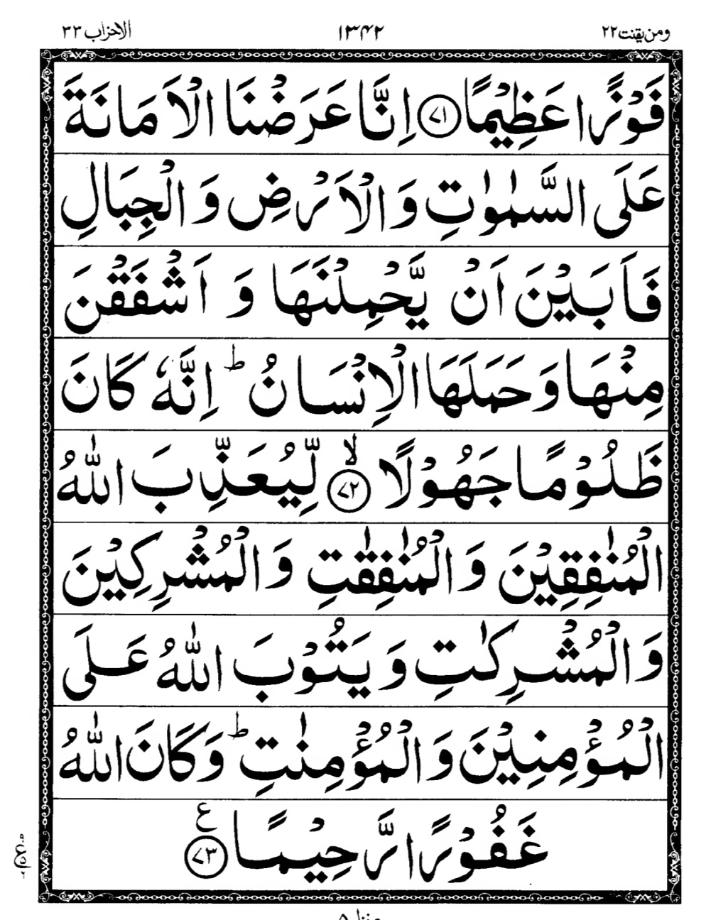 ومن يقنت ٢٢ ١٣٤٢ الاحزاب ٣٣
فَوْزًا عَظِيْمًا ﴿۷۱﴾ اِنَّا عَرَضْنَا الْاَمَانَةَ
عَلَى السَّمٰوٰتِ وَالْاَرْضِ وَالْجِبَالِ
فَاَبَيْنَ اَنْ يَّحْمِلْنَهَا وَ اَشْفَقْنَ
مِنْهَا وَحَمَلَهَا الْاِنْسَانُ ؕ اِنَّهٗ كَانَ
ظَلُوْمًا جَهُوْلًا ۙ﴿۷۲﴾ لِّيُعَذِّبَ اللّٰهُ
الْمُنٰفِقِيْنَ وَ الْمُنٰفِقٰتِ وَ الْمُشْرِكِيْنَ
وَ الْمُشْرِكٰتِ وَ يَتُوْبَ اللّٰهُ عَلَى
الْمُؤْمِنِيْنَ وَ الْمُؤْمِنٰتِ ؕ وَكَانَ اللّٰهُ
غَفُوْرًا رَّحِيْمًا ﴿۷۳﴾ ع
منزل ۵